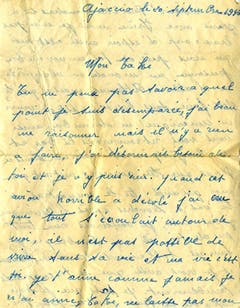 Ajaccio le 20 Septembre
Mon
Tu ne peux pas savoir à quel
point je suis désemparée, j'ai beau
me raisonner mais il n'y a rien
à faire, j'ai désormais besoin de
toi et je n'y puis rien. Quand cet
avion horrible a décolé j'ai cru
que tout s'écroulait autour de
moi, il n'est pas possible de
vivre sans sa vie et ma vie c'est
toi. Je t'aime comme jamais je
n'ai aimé, ne laisse pas mon